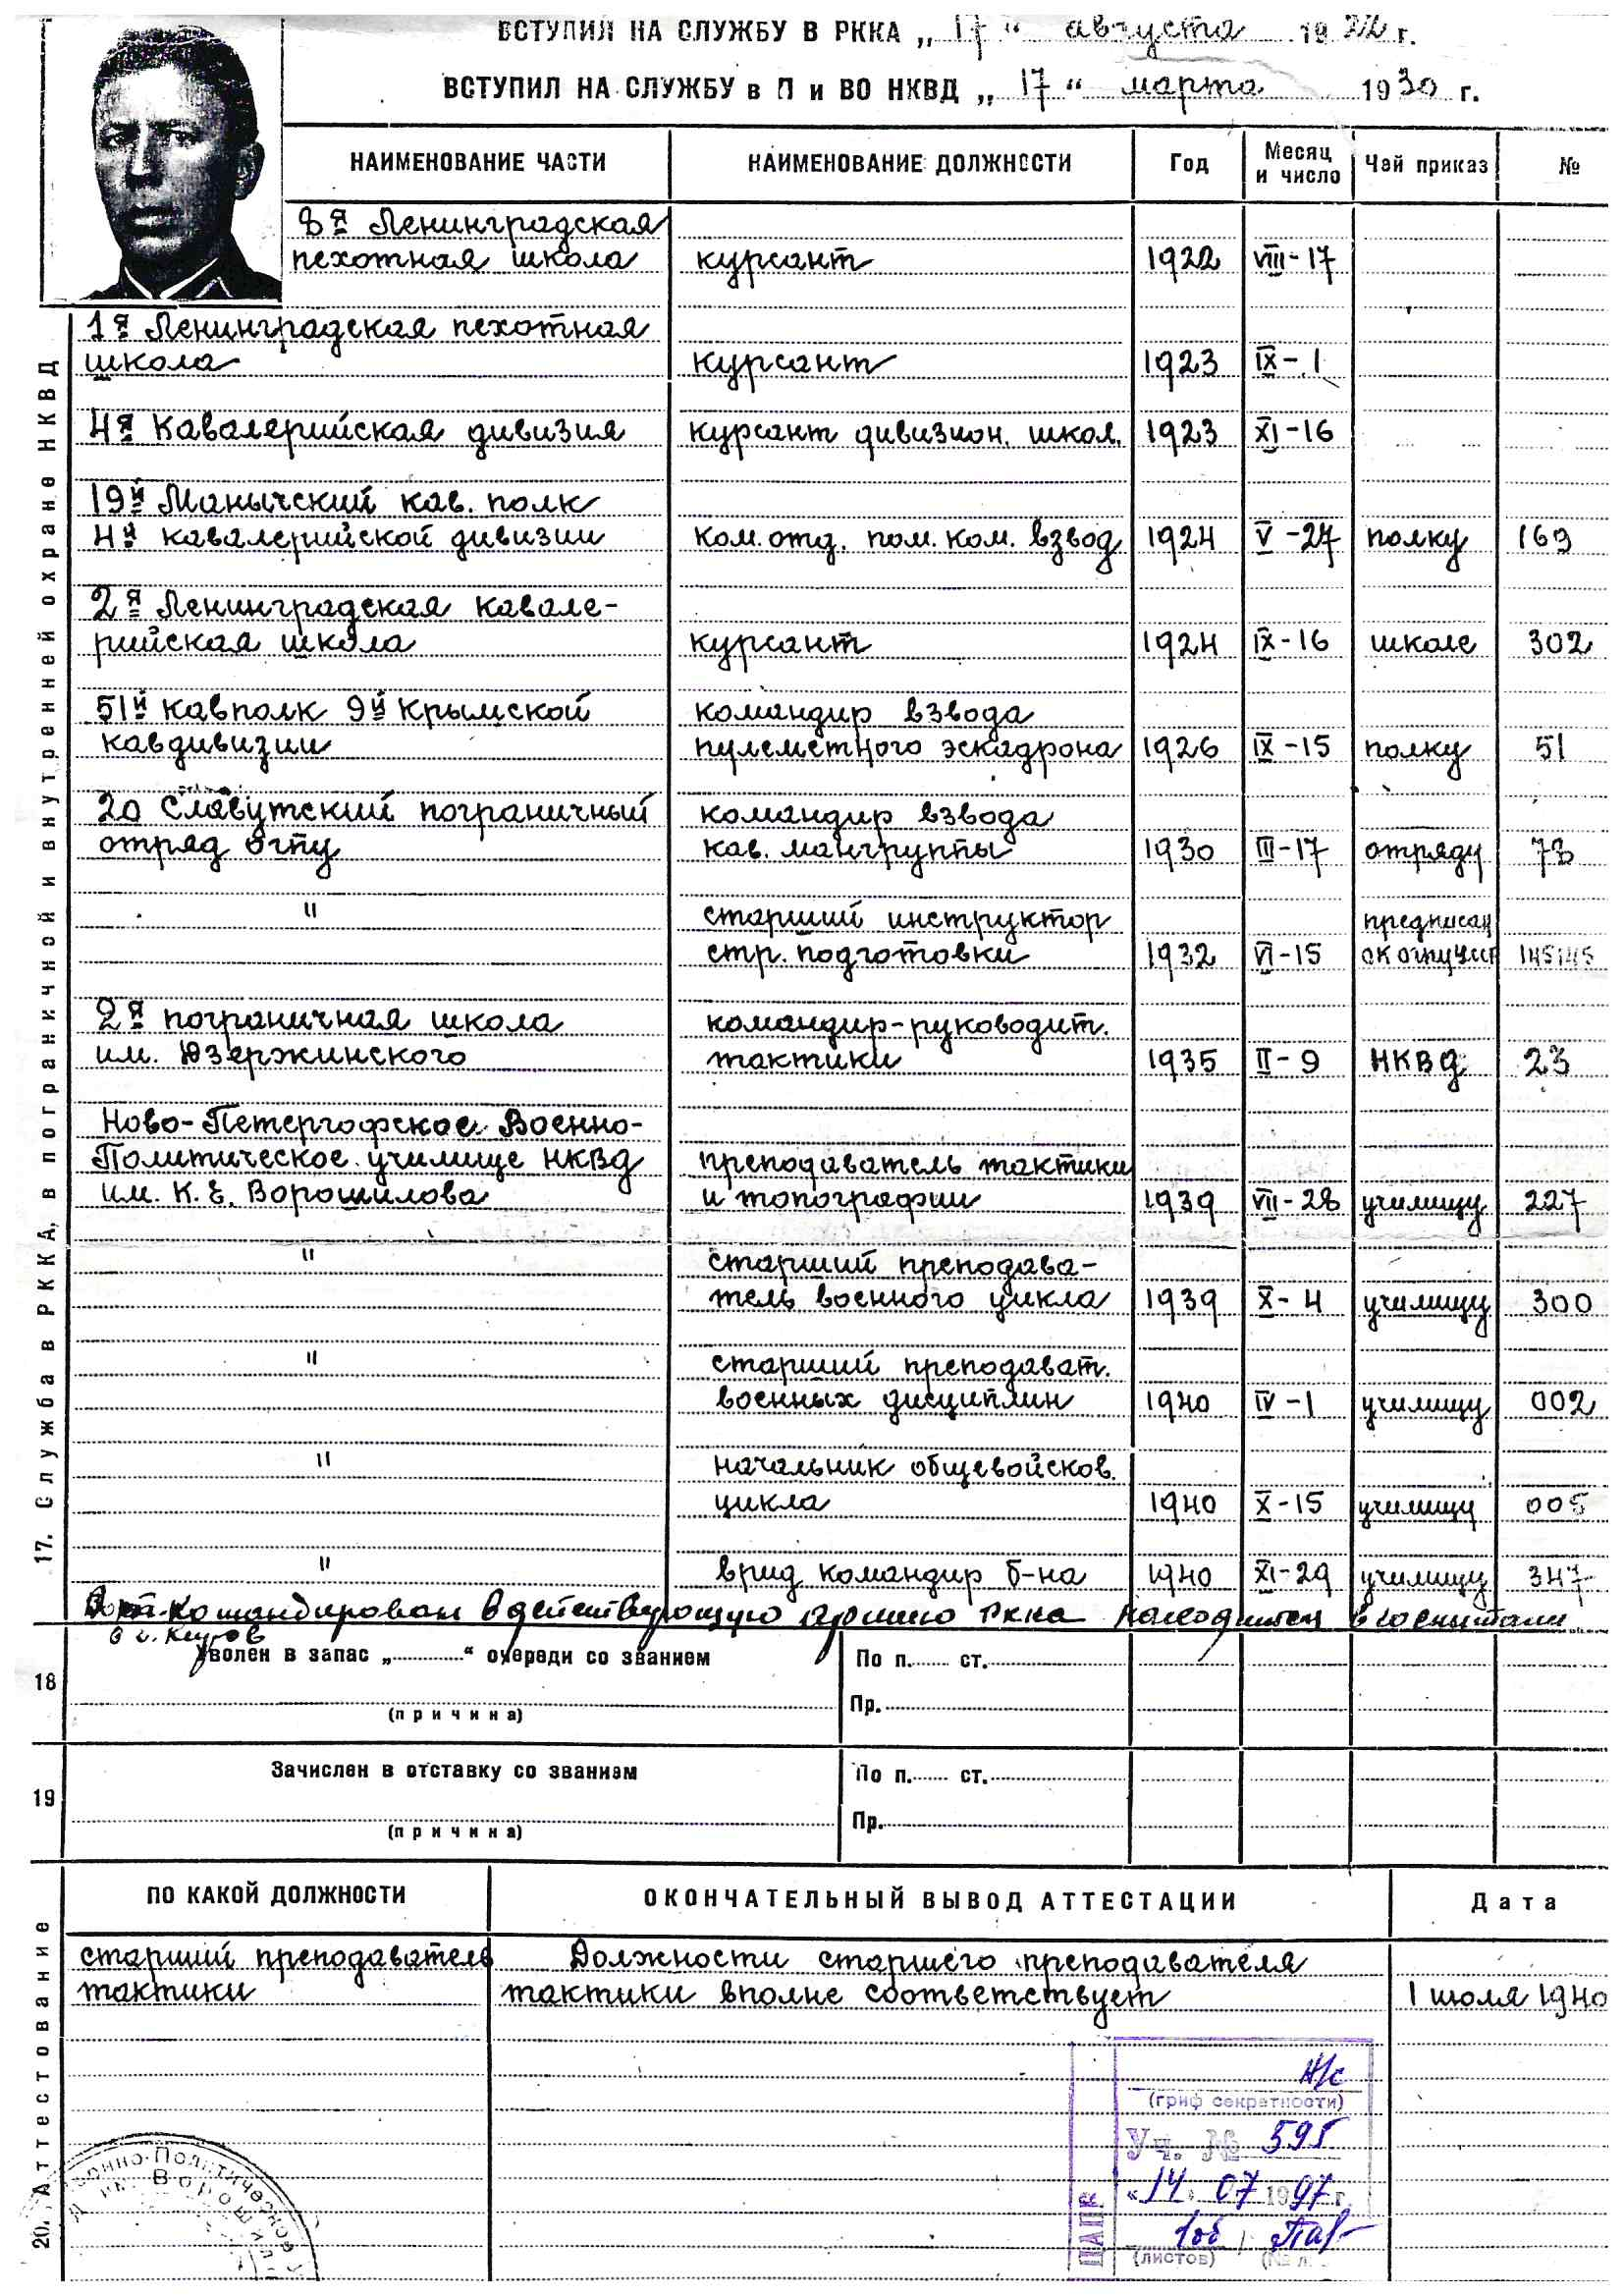 ВСТУПИЛ НА СЛУЖБУ В РККА „17“ августа 1922 г.
ВСТУПИЛ НА СЛУЖБУ в П и ВО НКВД „17“ марта 1930 г.
НАИМЕНОВАНИЕ ЧАСТИ НАИМЕНОВАНИЕ ДОЛЖНОСТИ Год Месяц и число Чей приказ №
17. Служба в РККА, в пограничной и внутренней охране НКВД
8я Ленинградская
пехотная школа курсант 1922 VIII-17
1я Ленинградская пехотная
школа курсант 1923 IX-1
4я Кавалерийская дивизия курсант дивизион. школ. 1923 XI-16
19й Манычский кав. полк
4й кавалерийской дивизии ком. отд. пом. ком. взвод 1924 V-27 полку 169
2я Ленинградская кавале-
рийская школа курсант 1924 IX-16 школе 302
51й кавполк 9й Крымской командир взвода
кавдивизии пулеметного эскадрона 1926 IX-15 полку 51
20 Славутский пограничный командир взвода
отряд ОГПУ кав. мангруппы 1930 III-17 отряду 78
" старший инструктор предписан
стр. подготовки 1932 VI-15 145145
2я пограничная школа командир-руководит.
им. Дзержинского тактики 1935 II-9 НКВД 23
Ново-Петергофское Военно-
Политическое училище НКВД преподаватель тактики
им. К.Е. Ворошилова и топографии 1939 VII-28 училищу 227
" старший преподава-
тель военного цикла 1939 X-4 училищу 300
" старший преподават.
военных дисциплин 1940 IV-1 училищу 002
" начальник общевойсков.
цикла 1940 X-15 училищу 005
" врид командир б-на 1940 XI-29 училищу 347
откомандирован в действующую армию РККА находится в госпитале
в г. Киров
18 Уволен в запас „ “ очереди со званием По п. ст.
(причина) Пр.
19 Зачислен в отставку со званием По п. ст.
(причина) Пр.
20. Аттестование
ПО КАКОЙ ДОЛЖНОСТИ ОКОНЧАТЕЛЬНЫЙ ВЫВОД АТТЕСТАЦИИ Дата
старший преподаватель Должности старшего преподавателя
тактики тактики вполне соответствует 1 июля 1940
Н/с
(гриф секретности)
Уч. № 595
«14» 07 1997 г.
1об
(листов) (№ л.
ЦАПВ
Военно-Политическое
им Ворошил